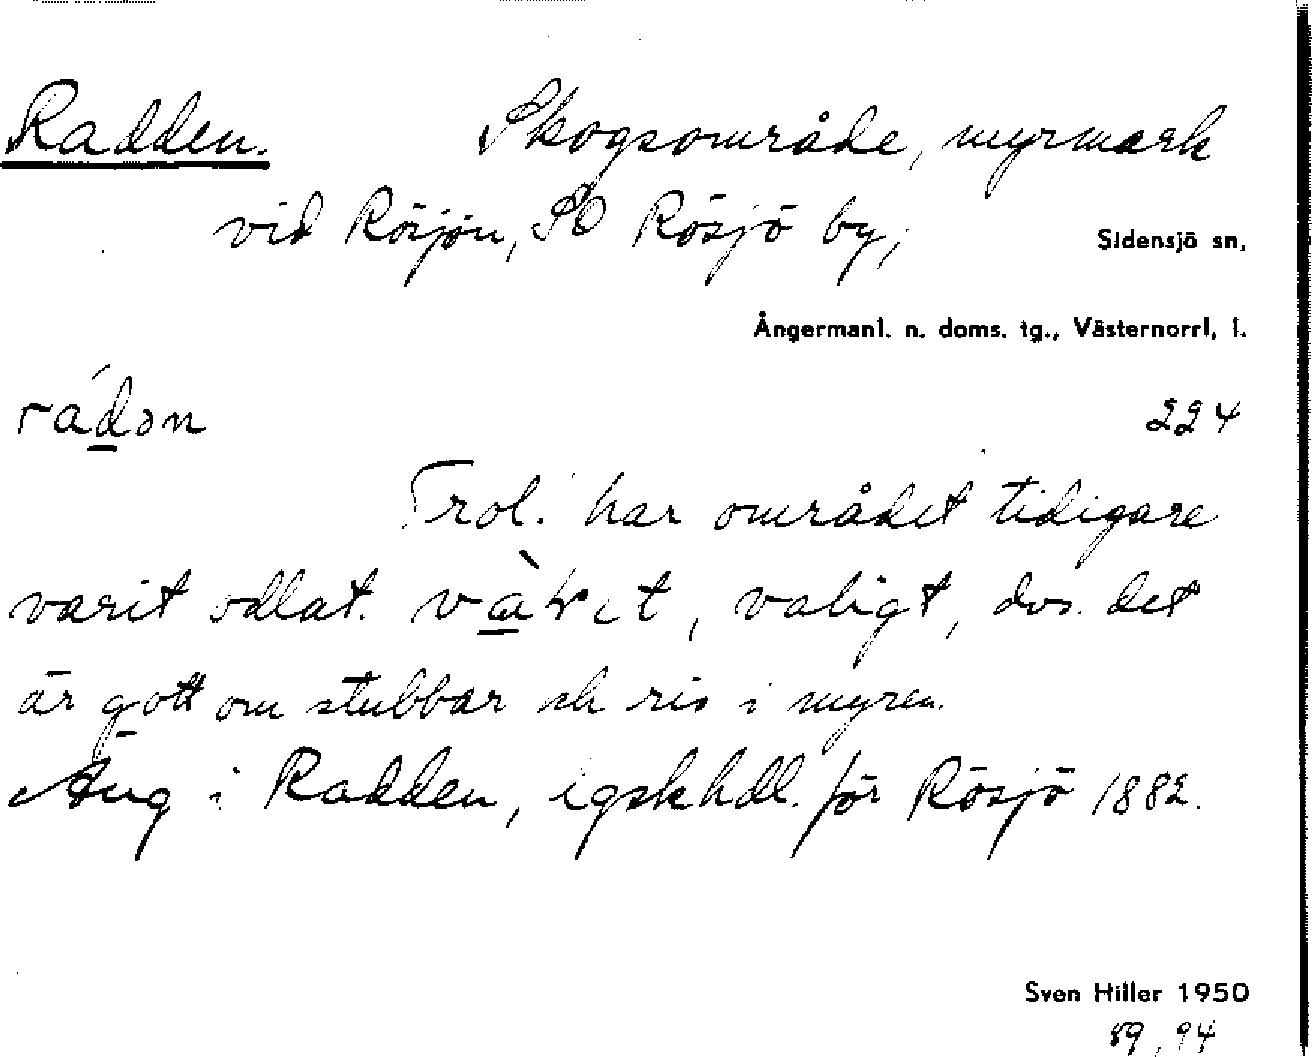 Radden. Skogsområde, myrmark
vid Rösjön, SO Rösjö by,
Sidensjö sn,
Ångermanl. n. doms. tg., Västernorrl. l.
rádən 224
Trol. har området tidigare
varit odlat. valigt, dvs. det
är gott om stubbar och ris i myren.
Äng i Radden, lgskhdl. för Rösjö 1882.
Sven Hiller 1950
89, 94